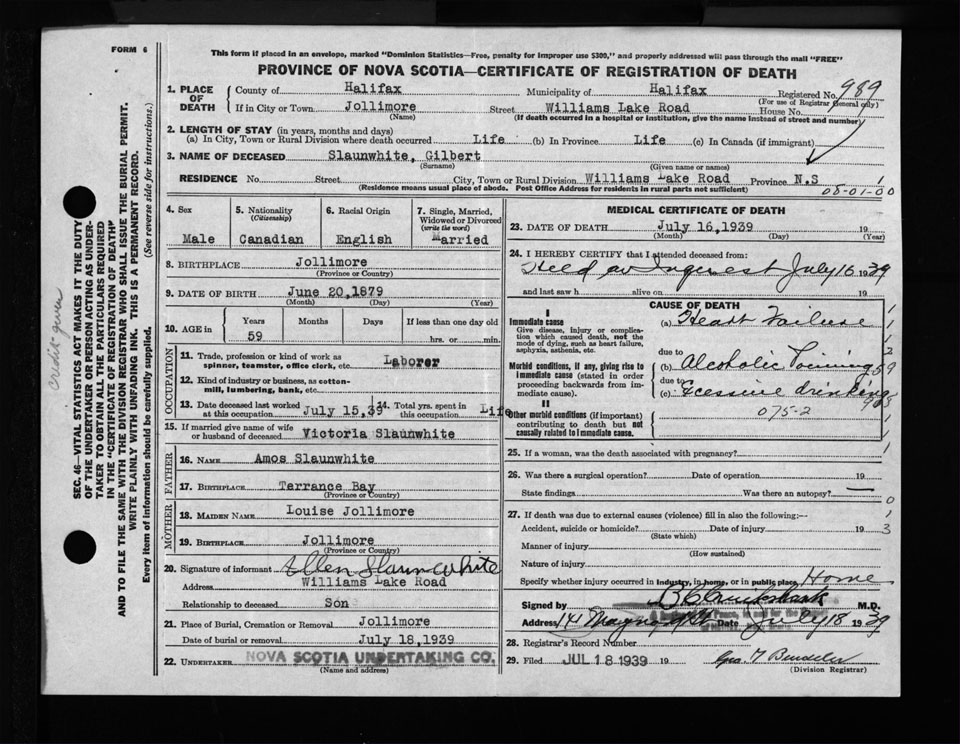 FORM 6
This form if placed in an envelope, marked "Dominion Statistics—Free, penalty for improper use $300," and properly addressed will pass through the mail "FREE"
PROVINCE OF NOVA SCOTIA—CERTIFICATE OF REGISTRATION OF DEATH
989
1. PLACE OF DEATH
County of Halifax Municipality of Halifax Registered No.
(For use of Registrar General only)
If in City or Town Jollimore Street Williams Lake Road House No.
(Name) (If death occurred in a hospital or institution, give the name instead of street and number)
2. LENGTH OF STAY (in years, months and days)
(a) In City, Town or Rural Division where death occurred Life (b) In Province Life (c) In Canada (if immigrant)
3. NAME OF DECEASED Slaunwhite, Gilbert
(Surname) (Given name or names)
RESIDENCE No. Street City, Town or Rural Division Williams Lake Road Province N.S
(Residence means usual place of abode. Post Office Address for residents in rural parts not sufficient)
1
00-01-00
4. Sex
Male
5. Nationality
(Citizenship)
Canadian
6. Racial Origin
English
7. Single, Married, Widowed or Divorced
(write the word)
Married
8. BIRTHPLACE Jollimore
(Province or Country)
9. DATE OF BIRTH June 20,1879
(Month) (Day) (Year)
10. AGE in
Years Months Days If less than one day old
59 hrs. or min.
OCCUPATION
11. Trade, profession or kind of work as spinner, teamster, office clerk, etc. Laborer
12. Kind of industry or business, as cotton-mill, lumbering, bank, etc.
13. Date deceased last worked at this occupation July 15,39
14. Total yrs. spent in this occupation Life
15. If married give name of wife or husband of deceased Victoria Slaunwhite
FATHER
16. NAME Amos Slaunwhite
17. BIRTHPLACE Terrance Bay
(Province or Country)
MOTHER
18. MAIDEN NAME Louise Jollimore
19. BIRTHPLACE Jollimore
(Province or Country)
20. Signature of informant Allen Slaunwhite
Address Williams Lake Road
Relationship to deceased Son
21. Place of Burial, Cremation or Removal Jollimore
Date of burial or removal July 18,1939
22. UNDERTAKER NOVA SCOTIA UNDERTAKING CO.
(Name and address)
MEDICAL CERTIFICATE OF DEATH
23. DATE OF DEATH July 16,1939 19
(Month) (Day) (Year)
24. I HEREBY CERTIFY that I attended deceased from:
Held an Inquest July 16 1939
and last saw h alive on 19
CAUSE OF DEATH
I
Immediate cause
Give disease, injury or complication which caused death, not the mode of dying, such as heart failure, asphyxia, asthenia, etc.
(a) Heart Failure
due to
Morbid conditions, if any, giving rise to immediate cause (stated in order proceeding backwards from immediate cause).
(b) Alcoholic
due to
(c) Excessive drinking
075-2
II
Other morbid conditions (if important) contributing to death but not causally related to immediate cause.
25. If a woman, was the death associated with pregnancy?
26. Was there a surgical operation? Date of operation 19
State findings Was there an autopsy?
27. If death was due to external causes (violence) fill in also the following:—
Accident, suicide or homicide? Date of injury 19
(State which)
Manner of injury
(How sustained)
Nature of injury
Specify whether injury occurred in industry, in home, or in public place, Home
Signed by M.D.
Address 141 Date July 18 1939
28. Registrar's Record Number
29. Filed JUL 18 1939 19 Geo.
(Division Registrar)
SEC. 46—VITAL STATISTICS ACT MAKES IT THE DUTY
OF THE UNDERTAKER OR PERSON ACTING AS UNDER-
TAKER TO OBTAIN ALL THE PARTICULARS REQUIRED
IN THE "CERTIFICATE OF REGISTRATION OF DEATH"
AND TO FILE THE SAME WITH THE DIVISION REGISTRAR WHO SHALL ISSUE THE BURIAL PERMIT.
WRITE PLAINLY WITH UNFADING INK. THIS IS A PERMANENT RECORD.
Every item of information should be carefully supplied. (See reverse side for instructions.)
Credit given